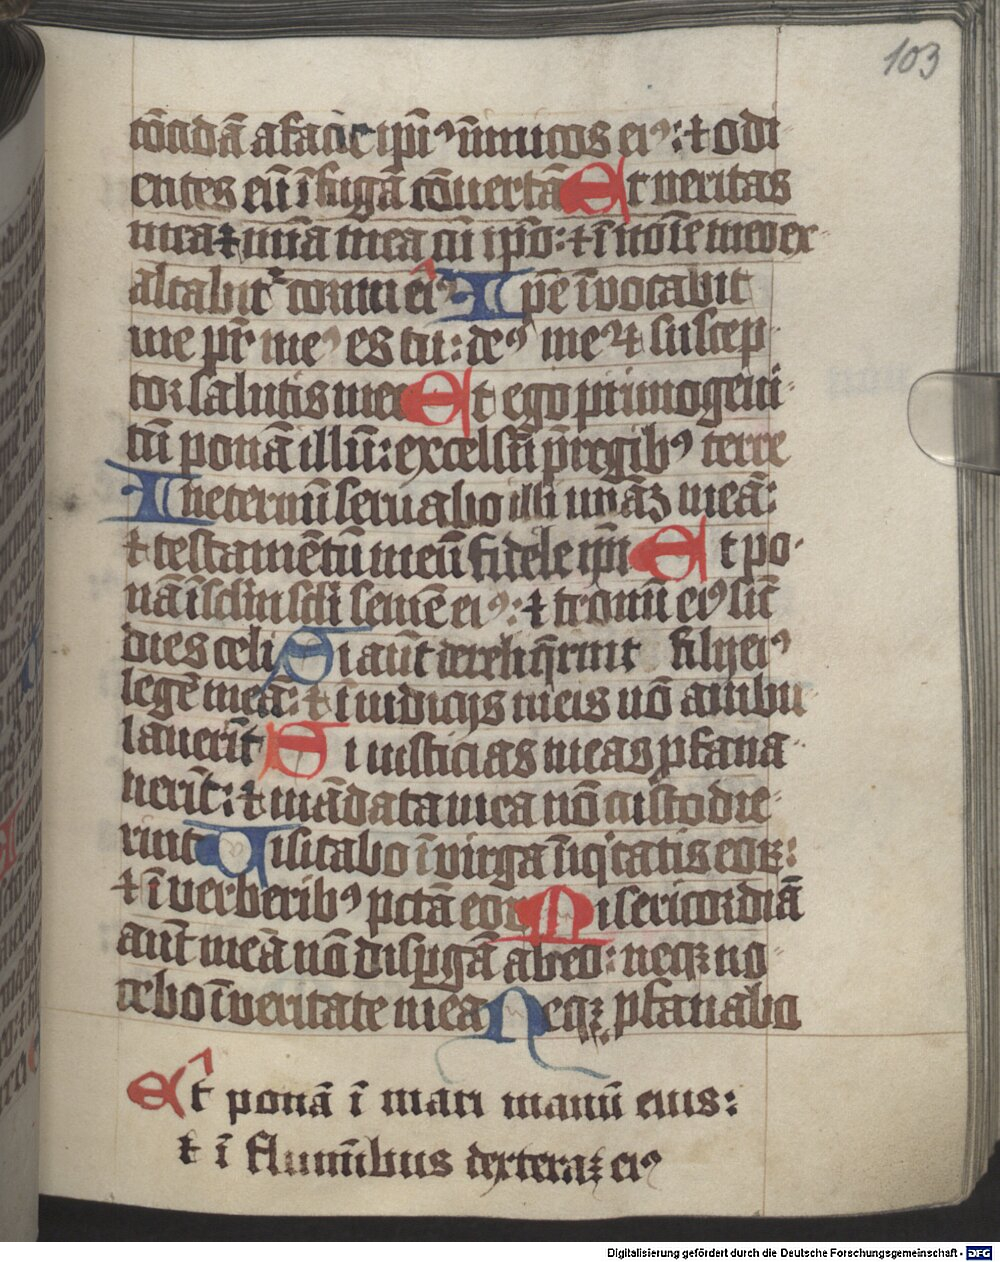 103
cōcidā a facie ipiꝰ īimicos eiꝰ: ⁊ odi
entes eū ī fugā cōuertā Et ueritas
mea ⁊ mīa mea cū ipo: ⁊ ī noīe meo ex
altabit᷑ cornu eiꝰ Ipe īuocabit
me pr̄ meꝰ es tu: deꝰ meꝰ ⁊ suscep
tor salutis mee Et ego primogeni
tū ponā illū: excelsū p̄ regibꝰ terre
In eternū seruabo illi mīāz meā:
⁊ testamētū meū fidele ipi Et po
nā ī sclm scli semē eiꝰ: ⁊ tronū eiꝰ sic̄
dies celi Si aūt dereliq̄rint filij eiꝰ
legē meā: ⁊ ī iudicijs meis nō ambu
lauerīt Si iusticias meas ꝓfana
uerīt: ⁊ mādata mea nō custodie
rint Uisitabo ī uirga īiqͥtatis eoꝝ:
⁊ ī uerberibꝰ pctā eoꝝ Misericordiā
aūt meā nō dispgā ab eo: neqꝫ no
cebo ī ueritate mea Neqꝫ ꝓfanabo
Et ponā ī mari manū eius:
⁊ ī fluminībus dexteraꝫ eiꝰ
Digitalisierung gefördert durch die Deutsche Forschungsgemeinschaft - DFG